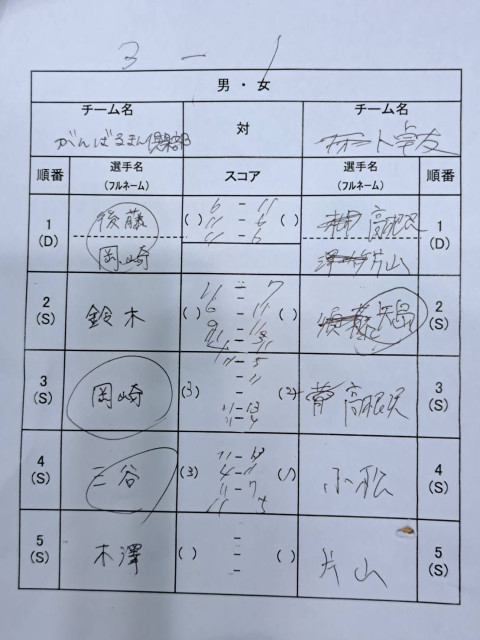 3 - 1
男・女
チーム名 対 チーム名
がんばるまん倶楽部 卓友
順番 選手名 (フルネーム) スコア 選手名 (フルネーム) 順番
1 (D) 後藤 ( ) 6 - 11 ( ) 高根沢 1 (D)
11 - 6
岡崎 11 - 6 片山
2 (S) 鈴木 ( ) 11 - 7 ( ) 矢島 2 (S)
6 - 11
9 - 11
3 (S) 岡崎 (3) - (2) 高根沢 3 (S)
- 11
11 - 13
11 - 4
4 (S) 三谷 (3) (1) 小松 4 (S)
4 - 11
11 - 7
11 5
5 (S) 木澤 ( ) - ( ) 片山 5 (S)
-
-